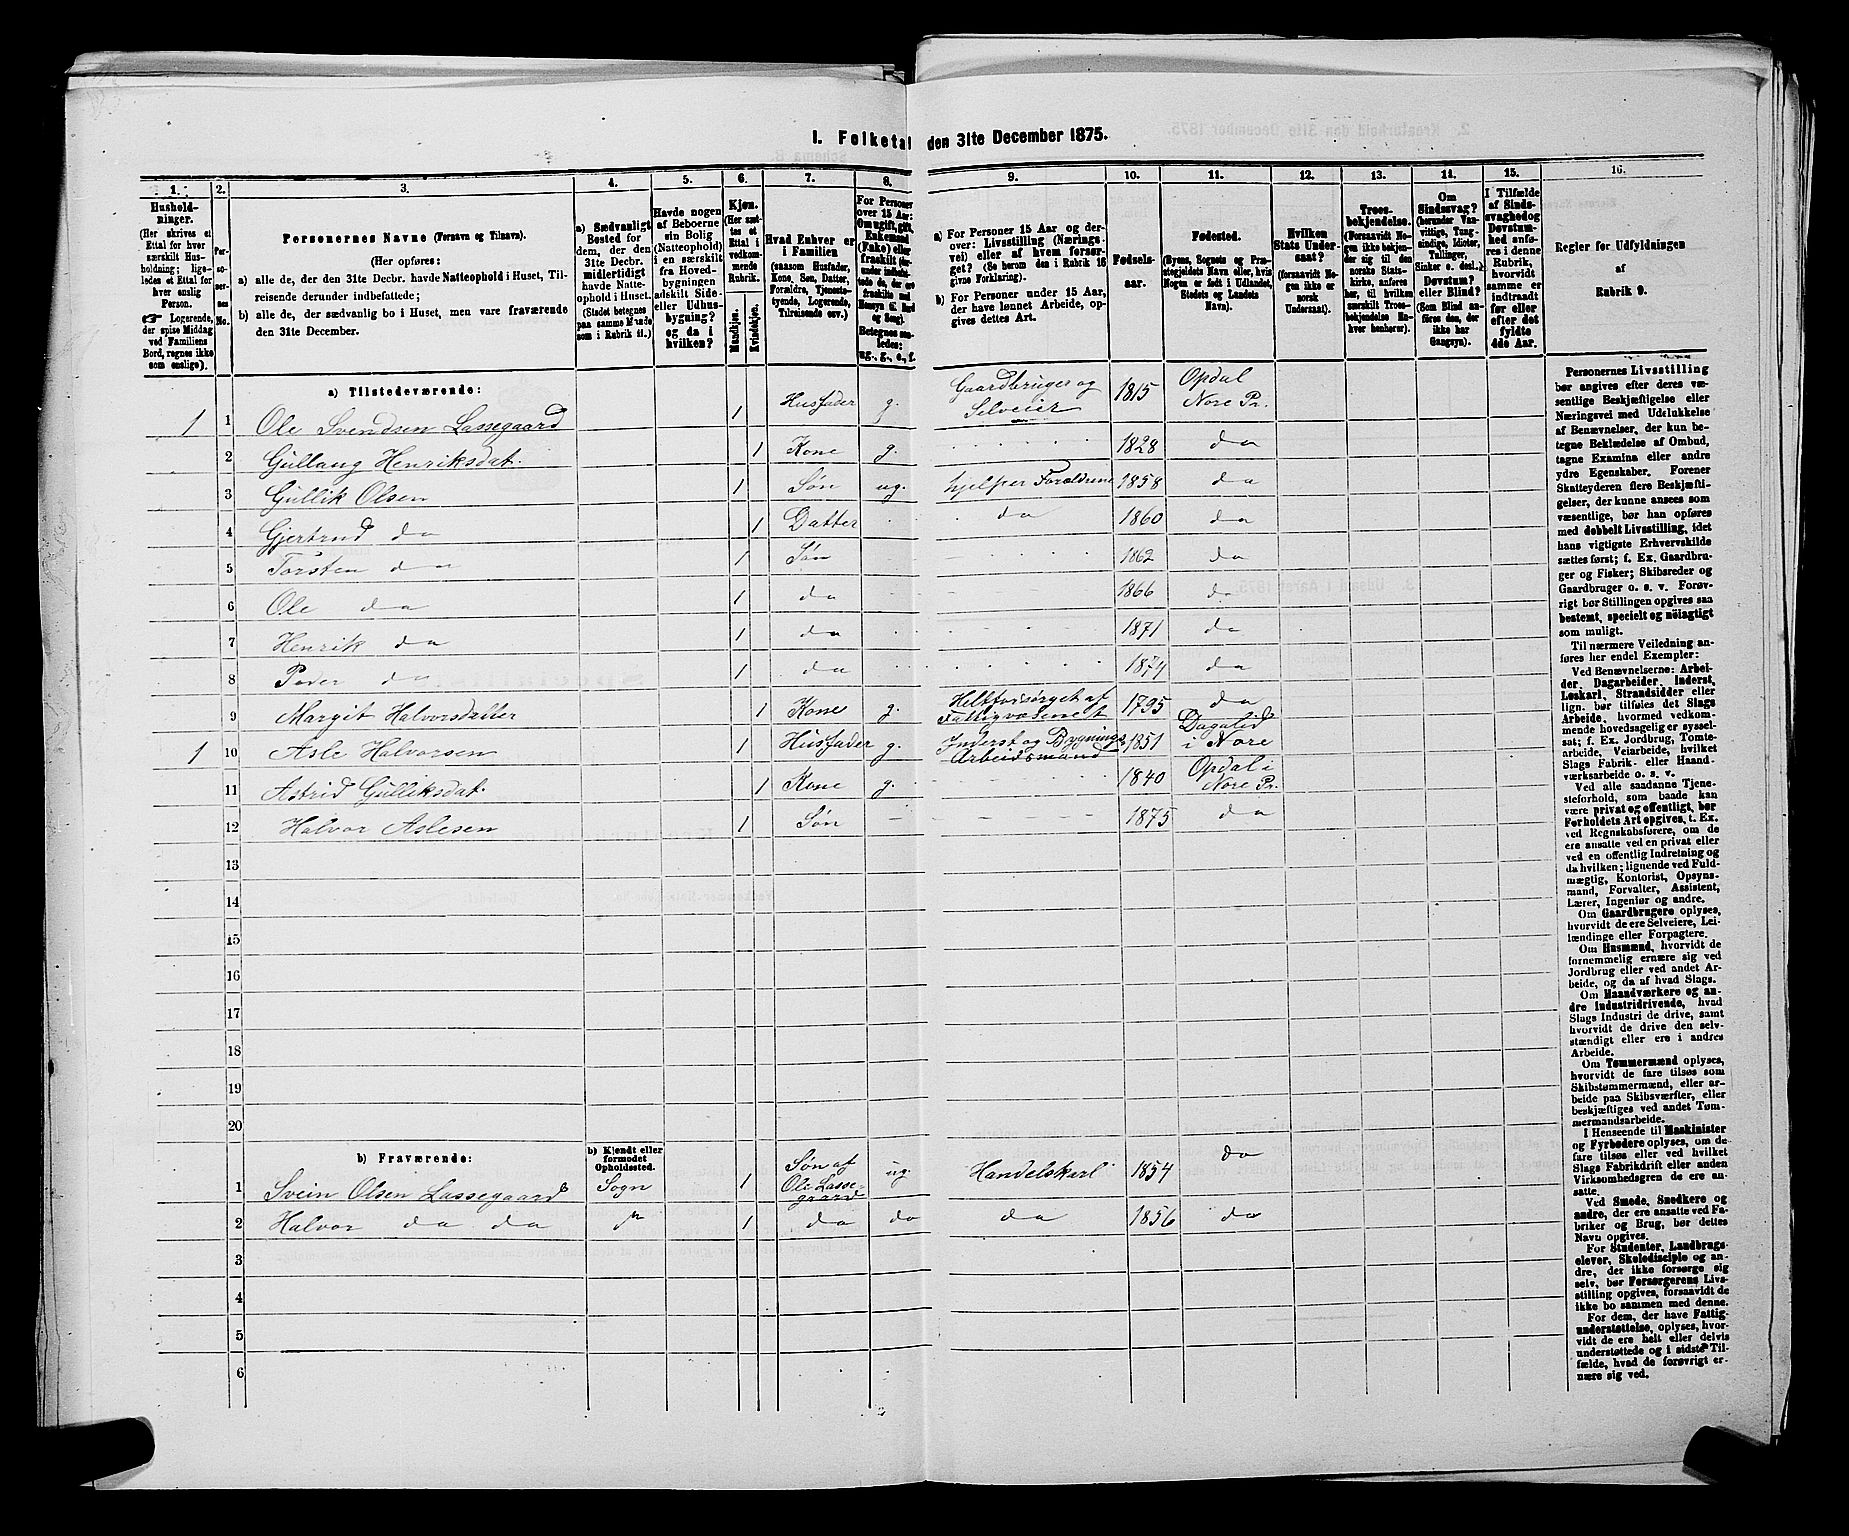 I. Folketal den 31te December 1875.
1. 2. 3. 4. 5. 6. 7. 8. 9. 10. 11. 12. 13. 14. 15. 16.
Hushold-
ninger.
(Her skrives et
Ettal for hver
særskilt Hus-
holdning; lige-
ledes et Ettal for
hver enslig
Person.
☞ Logerende,
der spise Middag
ved Familiens
Bord, regnes ikke
som enslige).
Per-
so-
ner-
nes
No.
Personernes Navne (Fornavn og Tilnavn).
(Her opføres:
a) alle de, der den 31te Decbr. havde Natteophold i Huset, Til-
reisende derunder indbefattede;
b) alle de, der sædvanlig bo i Huset, men vare fraværende
den 31te December.
a) Sædvanligt
Bosted for
dem, der den
31te Decbr.
midlertidigt
havde Natte-
ophold i Huset.
(Stedet betegnes
paa samme Maade
som i Rubrik 11.)
Havde nogen
af Beboerne
sin Bolig
(Natteophold)
i en særskilt
fra Hoved-
bygningen
adskilt Side-
eller Udhus-
bygning?
og da i
hvilken?
Kjøn.
(Her sæt-
tes et
Ettal i
vedkom-
mende
Rubrik.
Mandkjøn.
Kvindekjøn.
Hvad Enhver er
i Familien
(saasom Husfader,
Kone, Søn, Datter,
Forældre, Tjeneste-
tyende, Logerende,
Tilreisende osv.)
For Personer
over 15 Aar:
Om ugift, gift,
Enkemand
(Enke) eller
fraskilt
Betegnes saa-
ledes:
ug., g., e., f.
a) For Personer 15 Aar og der-
over: Livsstilling (Nærings-
vei) eller af hvem forsør-
get? (Se herom den i Rubrik 16
givne Forklaring).
b) For Personer under 15 Aar,
der have lønnet Arbeide, op-
gives dettes Art.
Fødsels-
aar.
Fødested.
(Byens, Sognets og Præ-
stegjeldets Navn eller, hvis
Nogen er født i Udlandet,
Stedets og Landets
Navn).
Hvilken
Stats Under-
saat?
(forsaavidt No-
gen ikke er
norsk
Undersaat).
Troes-
bekjendelse.
(Forsaavidt No-
gen ikke bekjen-
der sig til den
norske Stats-
kirke, anføres
her, til hvilken
særskilt Troes-
bekjendelse En-
hver henhører).
Om
Sindssvag?
(herunder Van-
vittige, Tung-
sindige, Idioter,
Tullinger,
Sinker o. desl.)
Døvstum?
eller Blind?
(Som Blind an-
føres den, der
ikke har
Gangsyn).
I Tilfælde
af Sinds-
svaghed og
Døvstum-
hed anfø-
res i denne
Rubrik,
hvorvidt
samme er
indtraadt
før eller
efter det
fyldte
4de Aar.
Regler for Udfyldningen
af
Rubrik 9.
a) Tilstedeværende:
1 1 Ole Svendsen Lassegaard 1 Husfader g. Gaardbruger og Selveier 1815 Opdal Nore Pr.
2 Gullaug Henriksdat. 1 Kone g. 1828 do
3 Gullik Olsen 1 Søn ug. hjelper Forældrene 1858 do
4 Gjertrud do 1 Datter do 1860 do
5 Torsten do 1 Søn 1862 do
6 Ole do 1 do 1866 do
7 Henrik do 1 do 1871 do
8 Peder do 1 do 1874 do
9 Margit Halvorsdatter 1 Kone g. Heltforsørget af Fattigvæsenet 1795 do
1 10 Asle Halvorsen 1 Husfader g. Inderst og Bygnings Arbeidsmand 1851 Dagalid i Nore
11 Astrid Gulliksdat. 1 Kone g. 1840 Opdal i Nore Pr.
12 Halvor Aslesen 1 Søn 1875 do
13
14
15
16
17
18
19
20
b) Fraværende:
b) Kjendt eller
formodet
Opholdssted.
1 Svein Olsen Lassegaard Sogn 1 Søn af Ole Lassegaard ug. Handelskarl 1854 do
2 Halvor do do 1 do do do 1856 do
3
4
5
6
Personernes Livsstilling
bør angives efter deres væ-
sentlige Beskjæftigelse eller
Næringsvei med Udelukkelse
af Benævnelser, der kun be-
tegne Beklædelse af Ombud,
tagne Examina eller andre
ydre Egenskaber. Forener
Skatteyderen flere Beskjæfti-
gelser, der kunne ansees som
væsentlige, bør han opføres
med dobbelt Livsstilling, idet
hans vigtigste Erhvervskilde
sættes først; f. Ex. Gaardbru-
ger og Fisker; Skibsreder og
Gaardbruger o. s. v. Forøv-
rigt bør Stillingen opgives saa
bestemt, specielt og nøiagtigt
som muligt.
Til nærmere Veiledning an-
føres her endel Exempler:
Ved Benævnelserne: Arbei-
der, Dagarbeider, Inderst,
Løskarl, Strandsidder eller
lign. bør tilføies det Slags
Arbeide, hvormed vedkom-
mende hovedsagelig er syssel-
sat; f. Ex. Jordbrug, Tomte-
arbeide, Veiarbeide, hvilket
Slags Fabrik- eller Haand-
værksarbeide o. s. v.
Ved alle saadanne Tjene-
steforhold, som baade kan
være privat og offentligt, bør
Forholdets Art opgives, t. Ex.
ved Regnskabsførere, om de
ere ansatte ved en privat eller
ved en offentlig Indretning og
da hvilken; lignende ved Fuld-
mægtig, Kontorist, Opsyns-
mand, Forvalter, Assistent,
Lærer, Ingeniør og andre.
Om Gaardbrugere oplyses,
hvorvidt de ere Selveiere, Lei-
lændinge eller Forpagtere.
Om Husmænd, hvorvidt de
fornemmelig ernære sig ved
Jordbrug eller ved andet Ar-
beide, og da af hvad Slags.
Om Haandværkere og an-
dre Industridrivende, hvad
Slags Industri de drive, samt
hvorvidt de drive den selv-
stændigt eller ere i andres
Arbeide.
Om Tømmermænd oplyses,
hvorvidt de fare tilsøs som
Skibstømmermænd, eller ar-
beide paa Skibsværfter, eller
beskjæftiges ved andet Tøm-
mermandsarbeide.
I Henseende til Maskinister
og Fyrbødere oplyses, om de
fare tilsøs eller ved hvilket
Slags Fabrikdrift eller anden
Virksomhedsgren de ere an-
satte.
Ved Smede, Snedkere og
andre, der ere ansatte ved Fa-
briker og Brug, bør dettes
Navn opgives.
For Studenter, Landbrugs-
elever, Skoledisciple og an-
dre, der ikke forsørge sig
selv, bør Forsørgerens Livs-
stilling opgives, forsaavidt de
ikke bo sammen med denne.
For dem, der have Fattig-
understøttelse, oplyses, hvor-
vidt de ere helt eller delvis
understøttede og i sidste Til-
fælde, hvad de forøvrigt er-
nære sig ved.